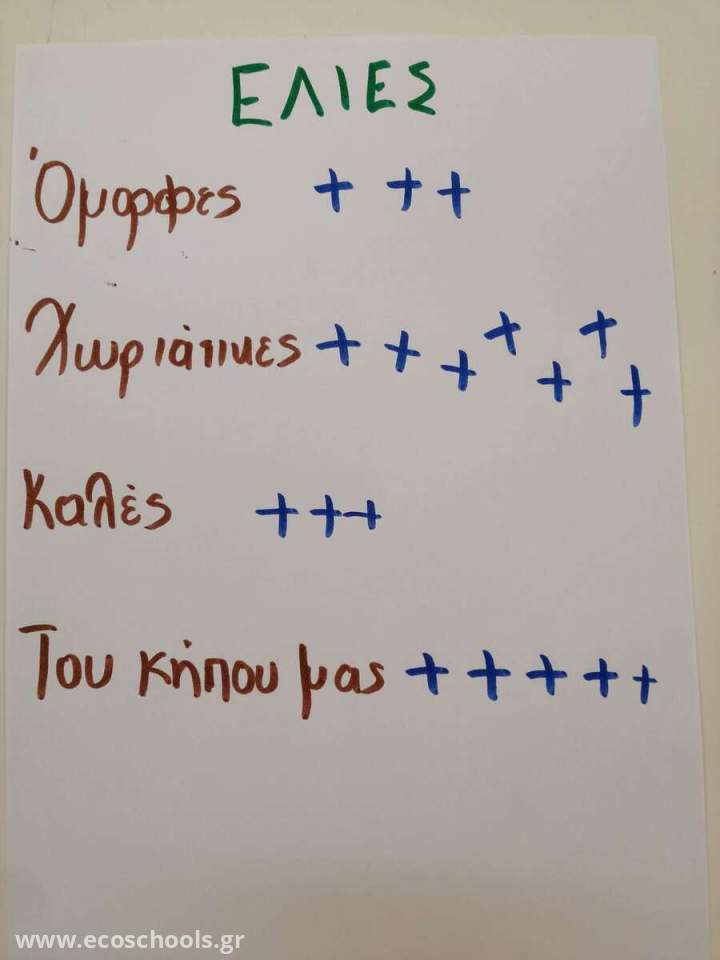 ΕΛΙΕΣ
Όμορφες + + +
Χωριάτικες + + + + + + +
Καλές + + +
Του κήπου μας + + + + +
www.ecoschools.gr